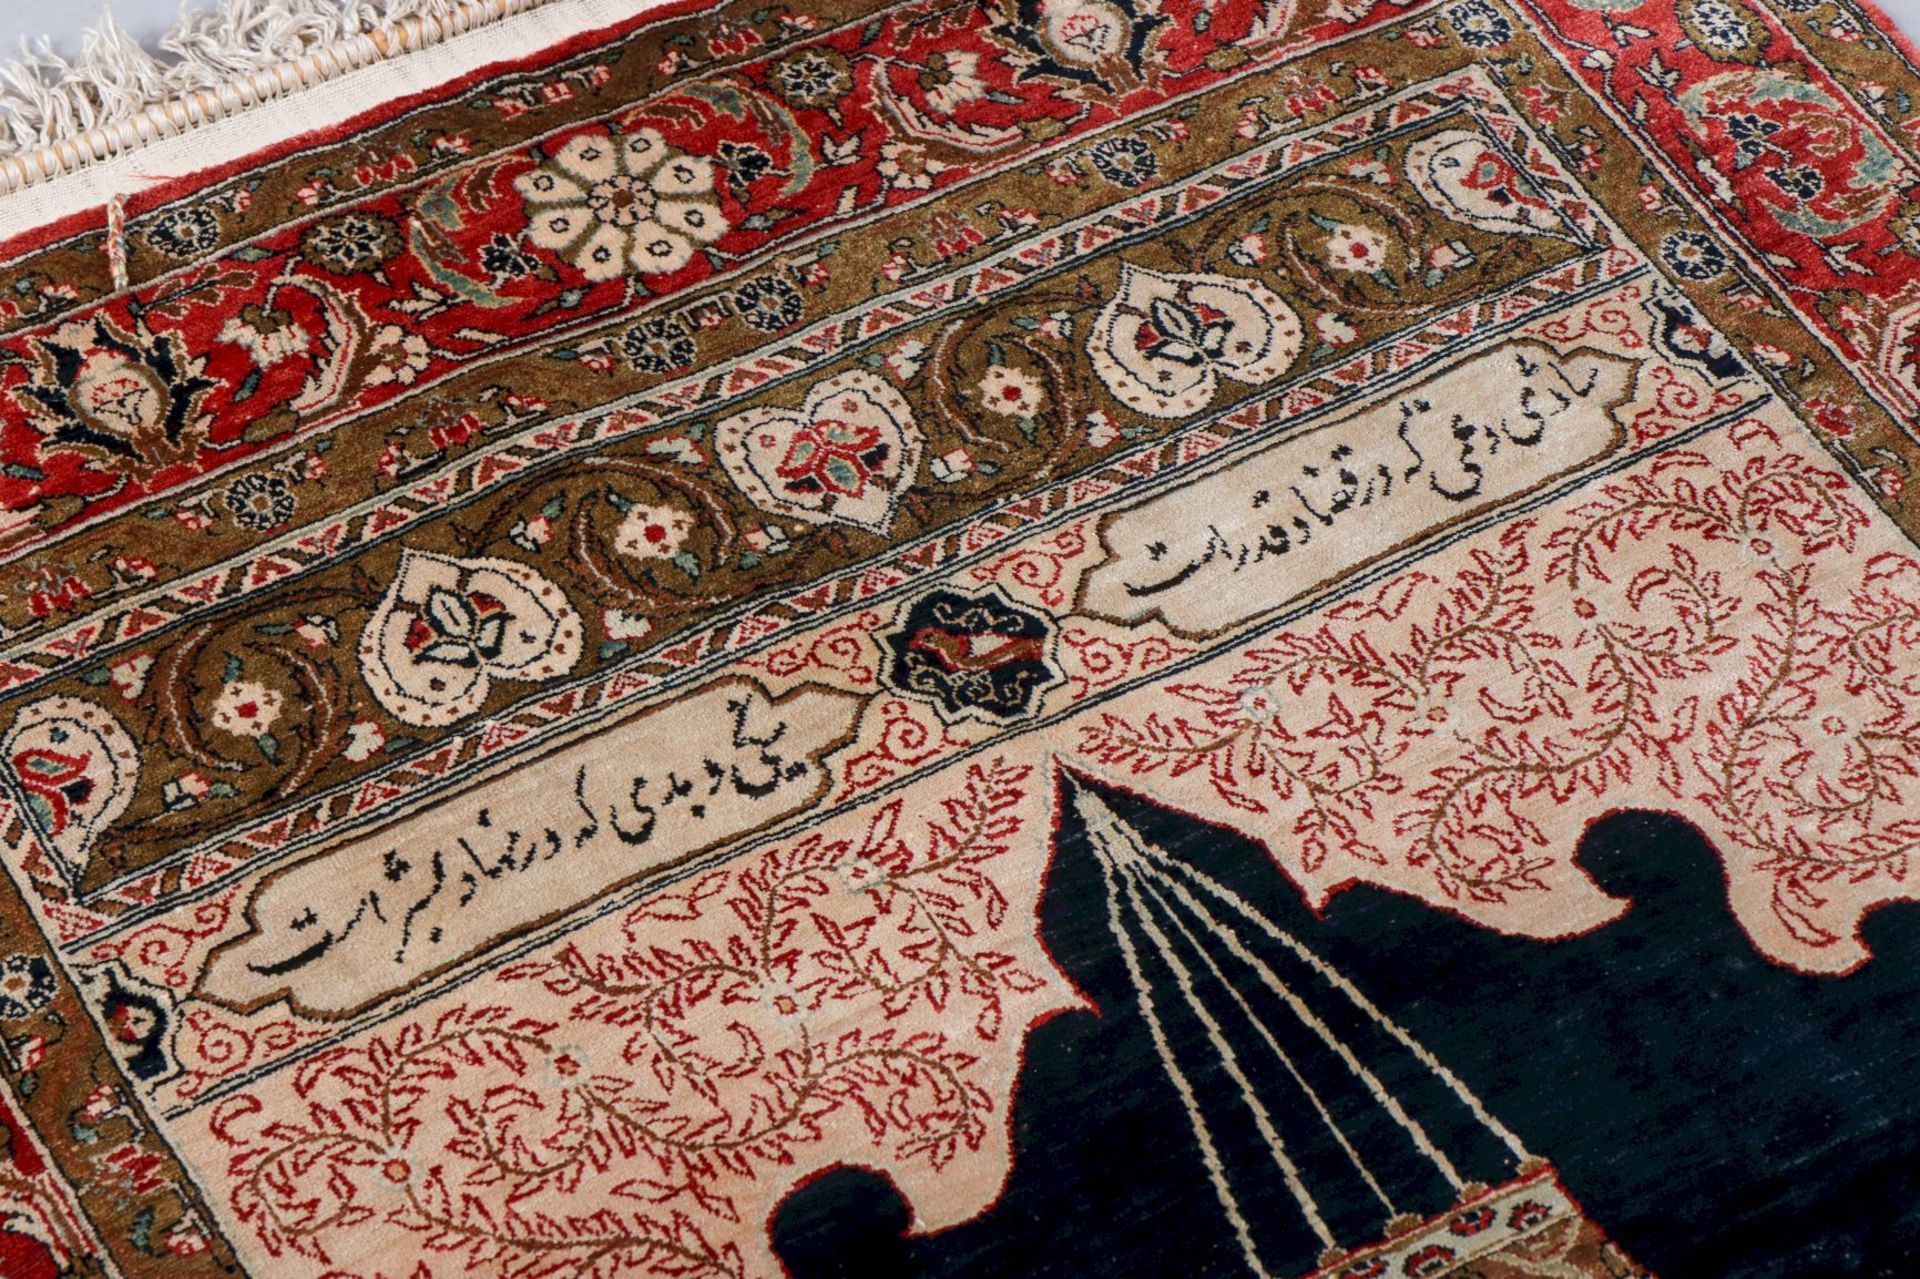 شادی و غمی که در قضا و قدر است
نیکی و بدی که در نهاد بشر است